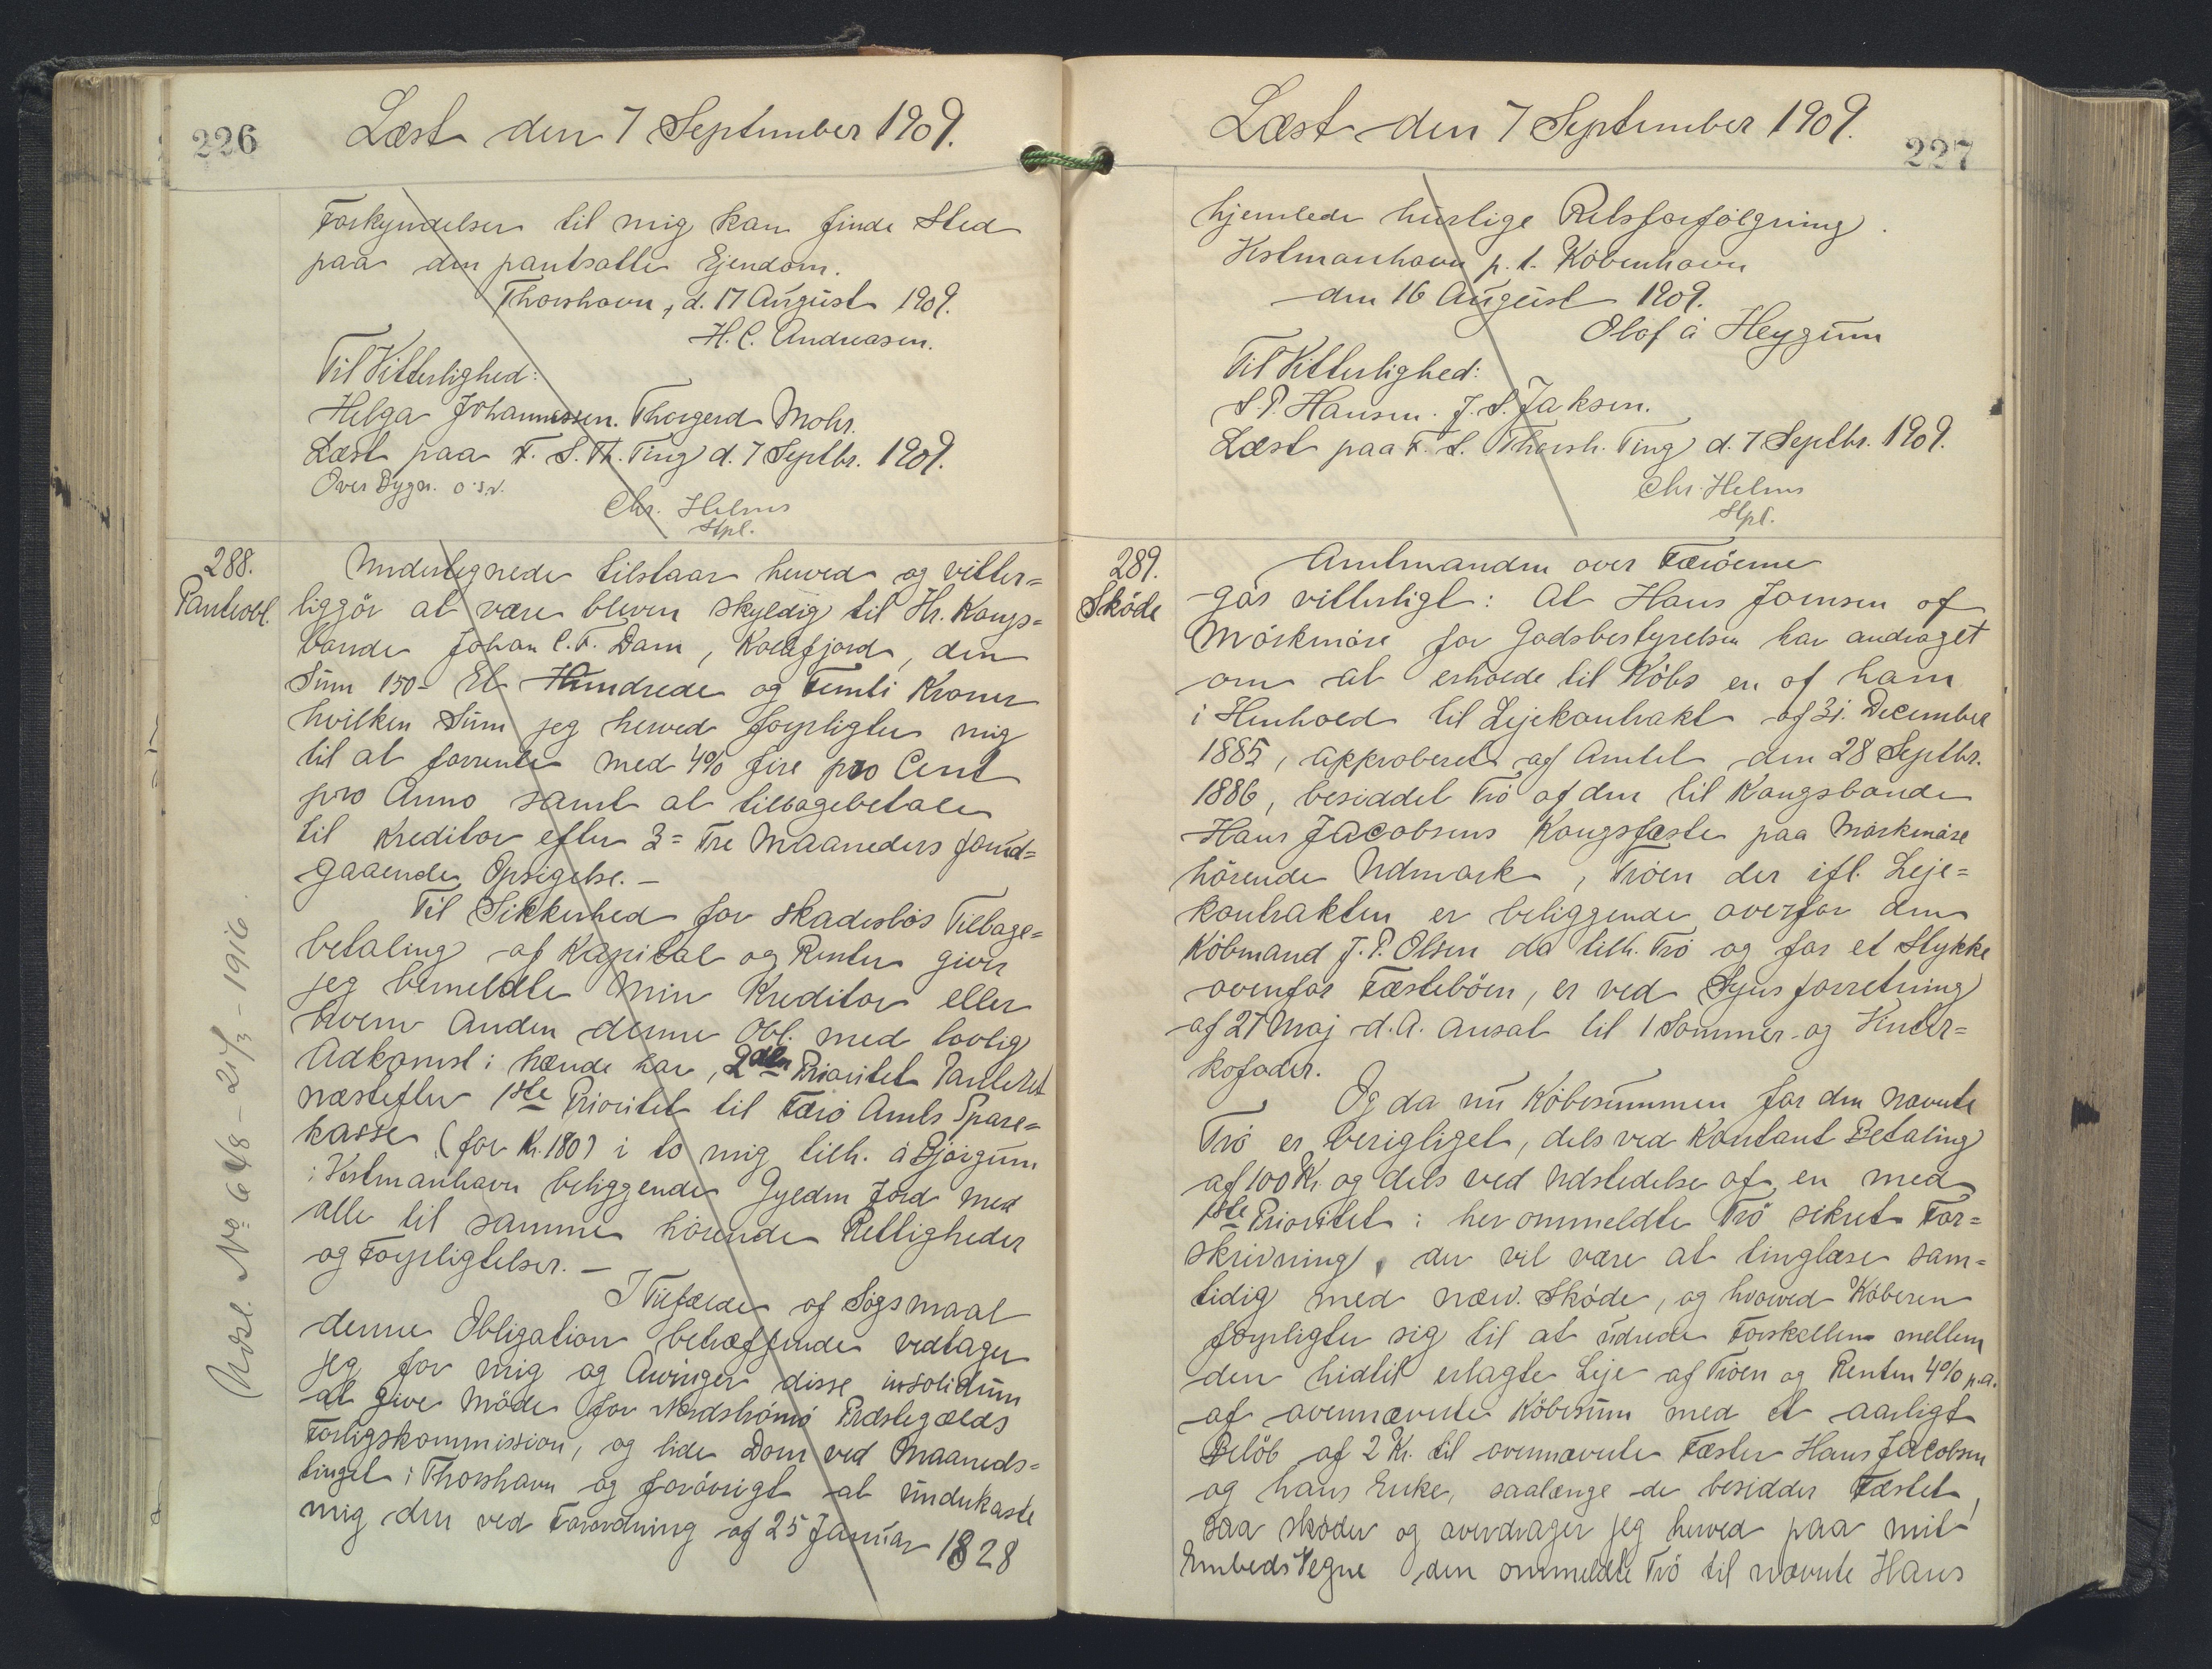 226
Læst den 7 September 1909.
Forkyndelser til mig kan finde Sted
paa den pantsatte Ejendom.
Thorshavn, d. 17 August 1909.
H. C. Andreasen.
Til Vitterlighed:
Helga Johannessen. Thorgerd Mohr.
Læst paa F. S. Th. Ting d. 7 Septbr. 1909.
Over Bygn. o.s.v.
Chr. Helms
Hpl.
288.
Panteobl.
Undertegnede tilstaar herved og vitter=
liggör at være bleven skyldig til Hr. Kongs=
bonde Johan C. F. Dam, Kollefjord, den
Sum 150= Et Hundrede og Femti Kroner
hvilken Sum jeg herved forpligter mig
til at forrente med 4% fire pro Cent
pro Anno samt at tilbagebetale
til Kreditor efter 3= Tre Maaneders forud=
gaaende Opsigelse. —
Til Sikkerhed for skadeslös Tilbage=
betaling af Kapital og Renter giver
jeg bemeldte min Kreditor eller
hvem Anden denne Obl. med lovlig
Adkomst i hænde har, 2den Prioritet Panteret
næstefter 1ste Prioritet til Færö Amts Spare=
kasse (for Kr. 180) i to mig tilh. á Bjórgum
i Vestmanhavn beliggende Gyldn Jord med
alle til samme hörende Rettigheder
og Forpligtelser. —
I Tilfælde af Sögsmaal
denne Obligation betræffende vedtager
jeg for mig og Arvinger disse insolidum
at give Möde for Nordströmö Præstegælds
Forligskommission, og lide Dom ved Maaneds=
tinget i Thorshavn og forövrigt at underkaste
mig den ved Forordning af 25 Januar 1828
Udsl. No 668 - 21/3 - 1916.
227
Læst den 7 September 1909.
hjemlede hurtige Retsforfölgning.
Vestmanhavn p. t. Köbenhavn
den 16 August 1909.
Olof á Heygum
Til Vitterlighed:
S. P. Hansen. J. S. Jaksen.
Læst paa F. S. Thorsh. Ting d. 7 Septbr. 1909.
Chr. Helms
Hpl.
289.
Sköde
Amtmanden over Færöerne
gör vitterligt: At Hans Joensen af
Mörkmöre for Godsbestyrelsen har andraget
om at erholde til Köbs en af ham
i Henhold til Lejekontrakt af 31. December
1885, approberet af Amtet den 28 Septbr.
1886, besiddet Trö af den til Kongsbonde
Hans Jacobsens Kongsfæste paa Mörkmöre
hörende Udmark, Tröen der ifl. Leje=
kontrakten er beliggende ovenfor den
Köbmand J. P. Olsen da tilh. Trö og for et Stykke
ovenfor Fæsteböen, er ved Synsforretning
af 27 Maj d. A. ansat til 1 Sommer- og Vinter=
kofoder.
Og da nu Köbesummen for den nævnte
Trö er berigtiget, dels ved Kontant Betaling
af 100 Kr. og dels ved Udstedelse af en med
1ste Prioritet i her ommeldte Trö sikret For=
skrivning, der vil være at tinglæse sam=
tidig med nærv. Sköde, og hvorved Köberen
forpligter sig til at udrede Forskellen mellem
den hidtil erlagte Leje af Tröen og Renten 4% p.a.
af ovennævnte Köbesum med et aarligt
Belöb af 2 Kr. til ovennævnte Fæster Hans Jacobsen
og hans Enke, saalænge de besidder Fæstet,
saa sköder og overdrager jeg herved paa mit
Embeds Vegne den ommeldte Trö til nævnte Hans